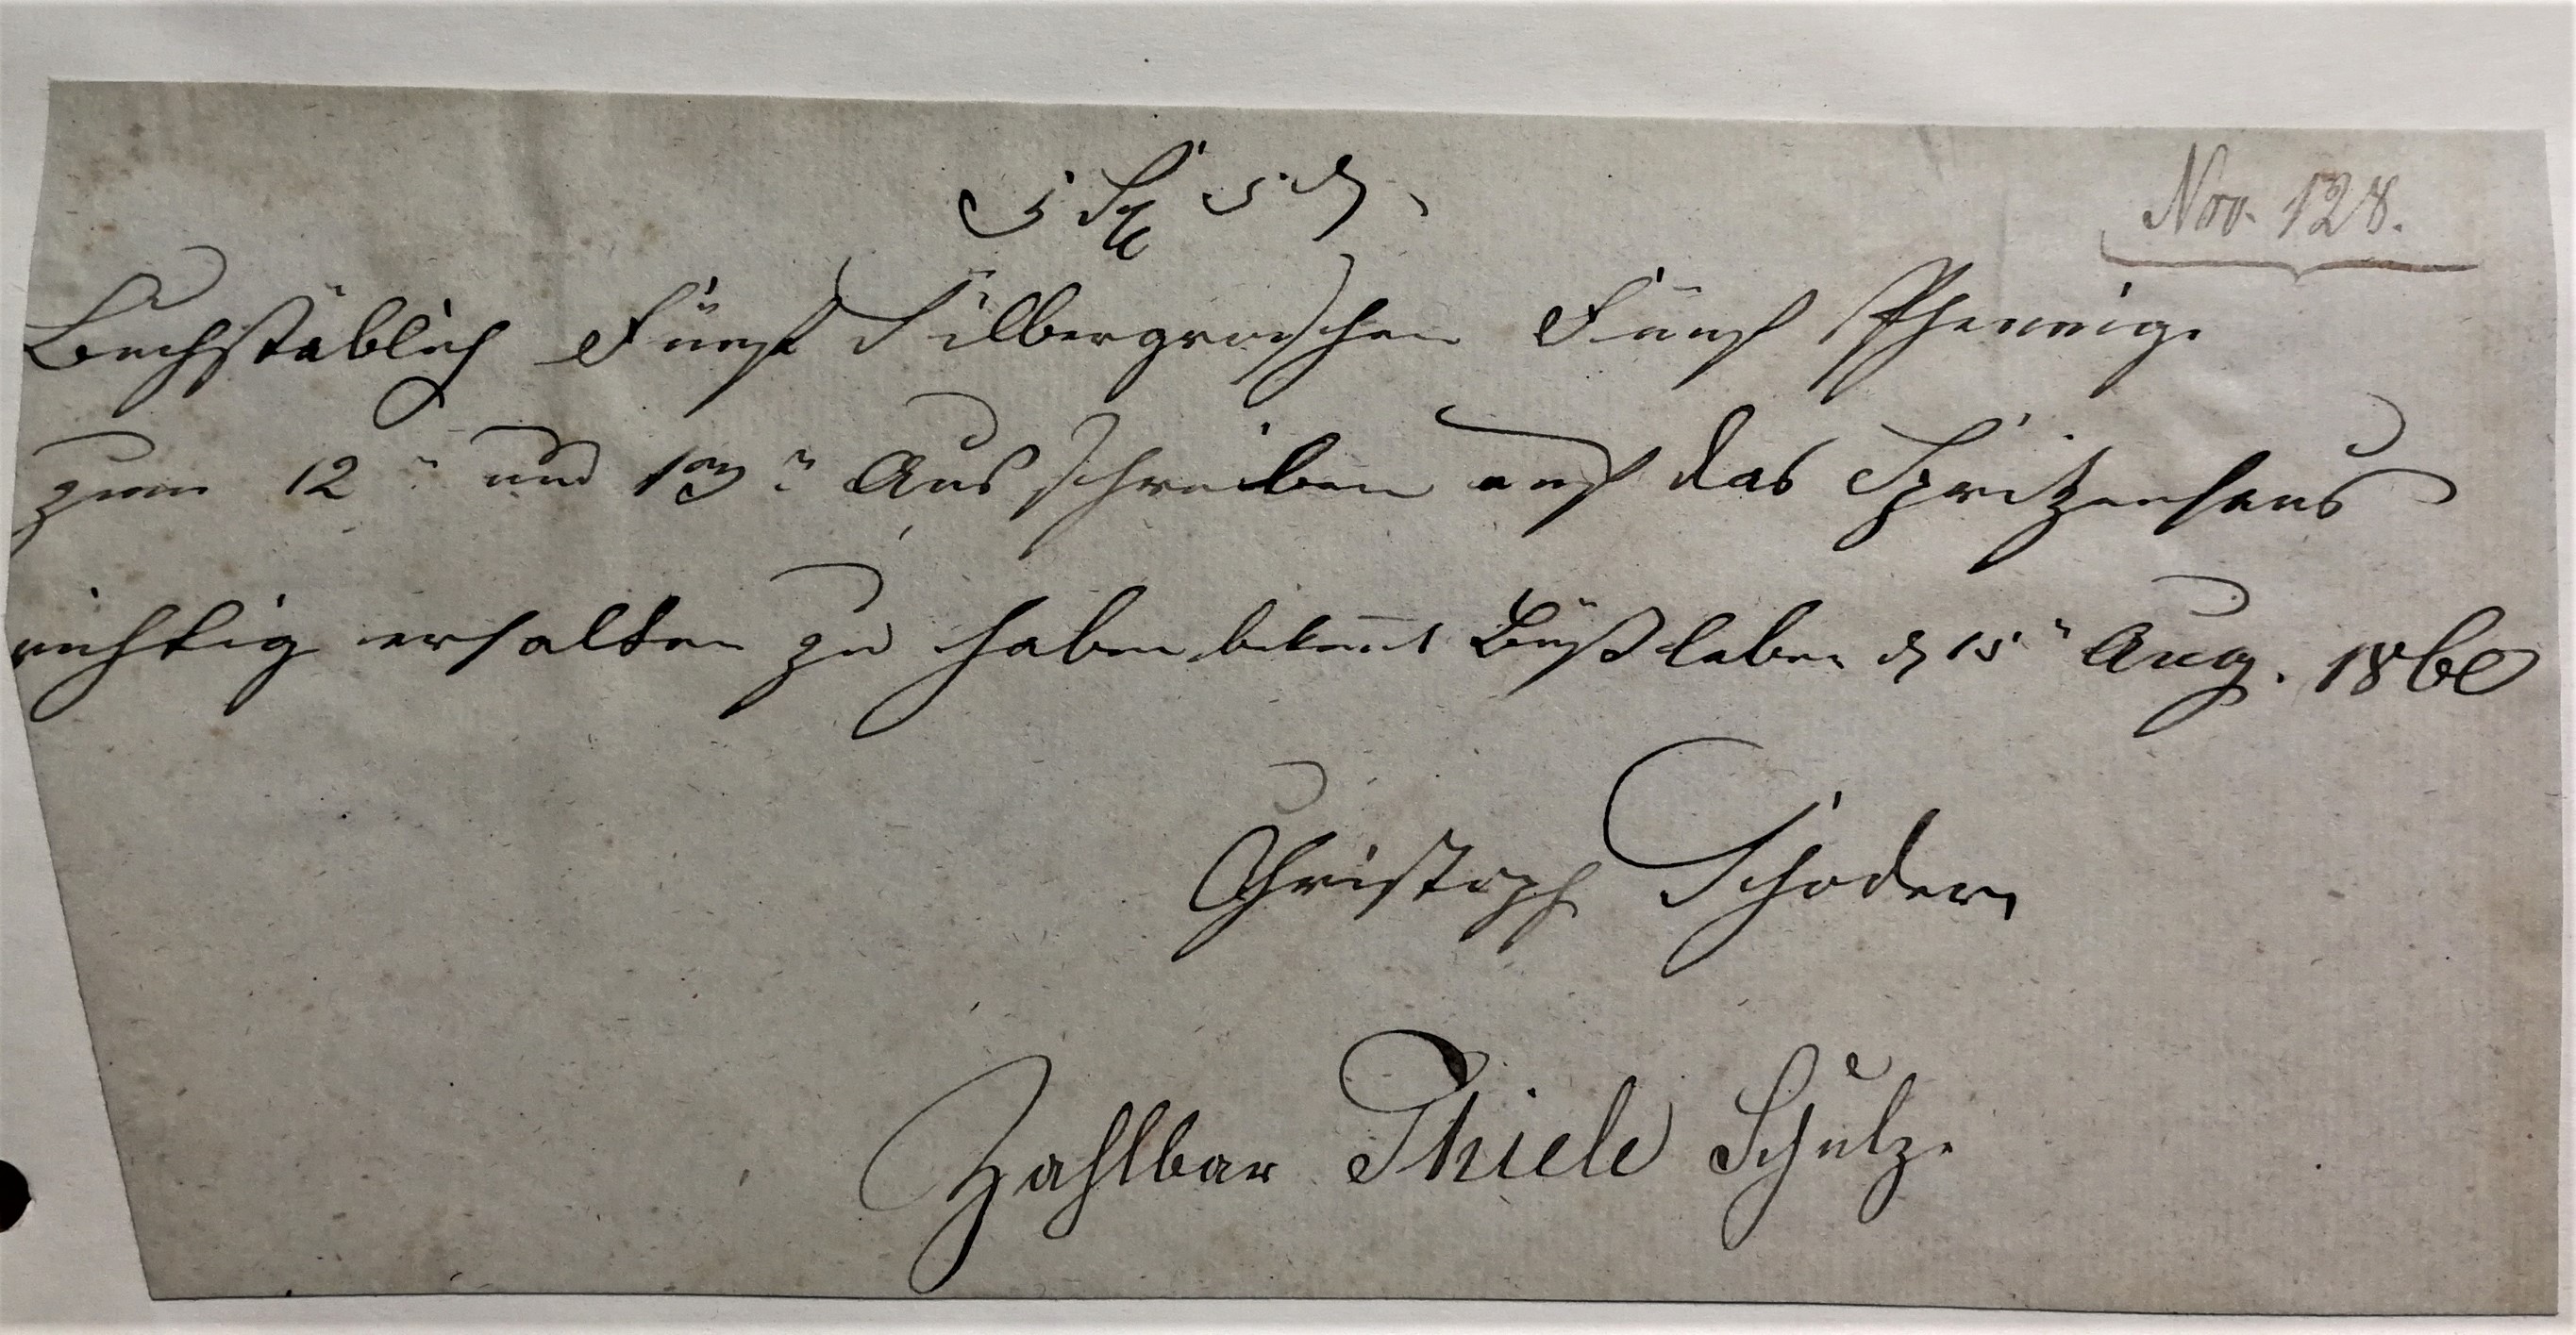 Nro. 128.
5 Sg 5 d.
Buchstäblich Fünf Silbergroschen Fünf Pfennige
zum 12" und 13" Ausschreiben auf das Spritzenhaus
richtig erhalten zu haben bekennt Büßleben d 15" Aug. 1860
Christoph Schodern
Zahlbar Thiele Schulze